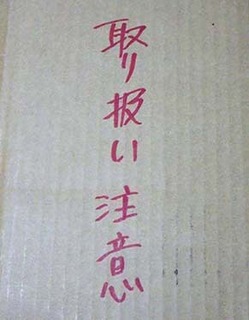 取り扱い注意